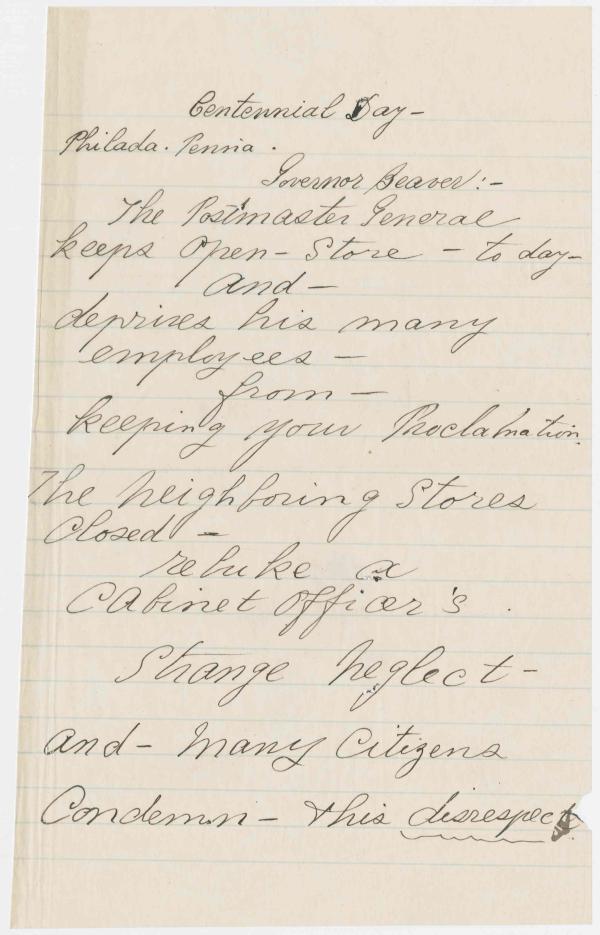 Centennial Day-
Philada. Penna.
Governor Beaver:-
The Postmaster General
keeps Open-Store - to day-
and-
deprives his many
employees -
from -
keeping your Proclamation.
The neighboring Stores
Closed -
rebuke a
Cabinet Officer's
Strange neglect -
and - many Citizens
Condemn - this disrespect.